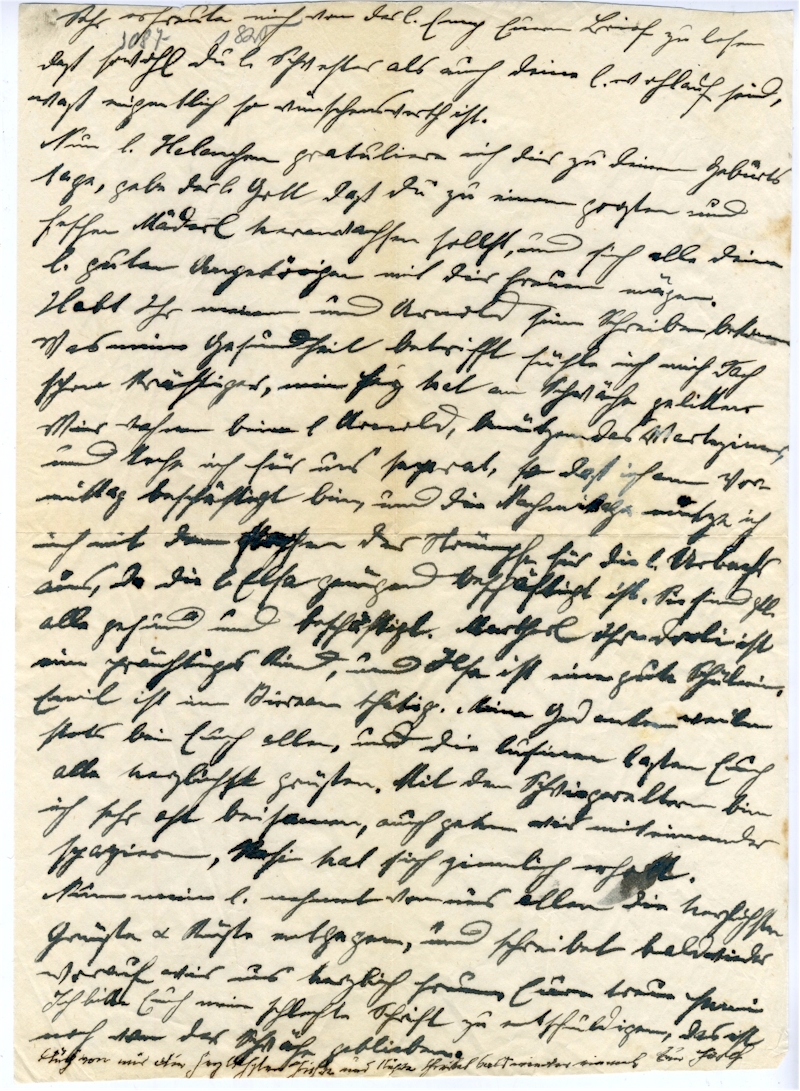 Sehr erfreute mich von der l. Emmy Euren Brief zu lesen
daß sowohl du l. Schwester als auch deine l. wohlauf sind,
was eigentlich so wünschenswerth ist.
Nun l. Helenchen gratuliere ich dir zu deinem Geburts
tage, gebe der l. Gott daß du zu einem großen und
feschen Mäderl heranwachsen sollst, und sich alle deine
l. guten Angehörigen mit dir freuen mögen.
Habt Ihr meinen und Arnold sein Schreiben bekommen
Was meine Gesundheit betrifft fühle ich mich doch
schon kräftiger, mein hat an Schwäche gelitten
Wir wohnen beim l Arnold, benützen das Wartezimmer,
und koche ich für uns separat, so daß ich am Vor-
mittag beschäftigt bin, und die Nachmittage nütze ich
ich mit dem der Strümpfe für die l.
aus, da die l Elsa genügend beschäftigt ist. Sie sind
alle gesund und beschäftigt. Martherl Ihre ist
ein prächtiges Kind, und Ilse ist eine gute Schülerin,
Emil ist im Bureau thätig. Meine Gedanken weilen
stets bei Euch allen, und die laßen Euch
alle herzlichst grüßen. Mit den Schwiegereltern bin
ich sehr oft beisamen, auch gehen wir miteinander
spazieren, hat sich ziemlich erholt.
Nun meine l. nehmet von uns allen die herzlichsten
Grüße & Küße entgegen, und schreibet bald wieder
worauf wir uns herzlich freuen, Eure treue
Ich bitte Euch mein schlechte Schrift zu entschuldigen, das ist
noch von der Schwäche geblieben.
Auch von mir die herzlichsten Grüße und Küße schreibet bald wieder einmal Euer Josef
1087